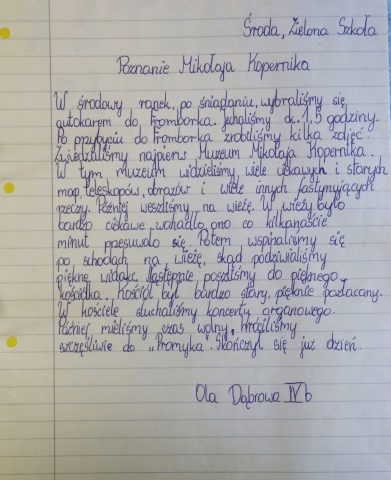 Środa, Zielona Szkoła
Poznanie Mikołaja Kopernika
W środowy ranek, po śniadaniu, wybraliśmy się
autokarem do Fromborka. Jechaliśmy ok. 1,5 godziny.
Po przybyciu do Fromborka zrobiliśmy kilka zdjęć.
Zwiedzaliśmy najpierw Muzeum Mikołaja Kopernika.
W tym muzeum widzieliśmy wiele ciekawych i starych
map, teleskopów, obrazów i wiele innych fascynujących
rzeczy. Później weszliśmy na wieżę. W wieży było
bardzo ciekawe wahadło, ono co kilkanaście
minut przesuwało się. Potem wspinaliśmy się
po schodach na wieżę, skąd podziwialiśmy
piękne widoki. Następnie poszliśmy do pięknego
kościoła. Kościół był bardzo stary, pięknie pozłacany.
W kościele słuchaliśmy koncertu organowego.
Później mieliśmy czas wolny. Wróciliśmy
szczęśliwie do „Promyka". Skończył się już dzień.
Ola Dąbrowa IV b